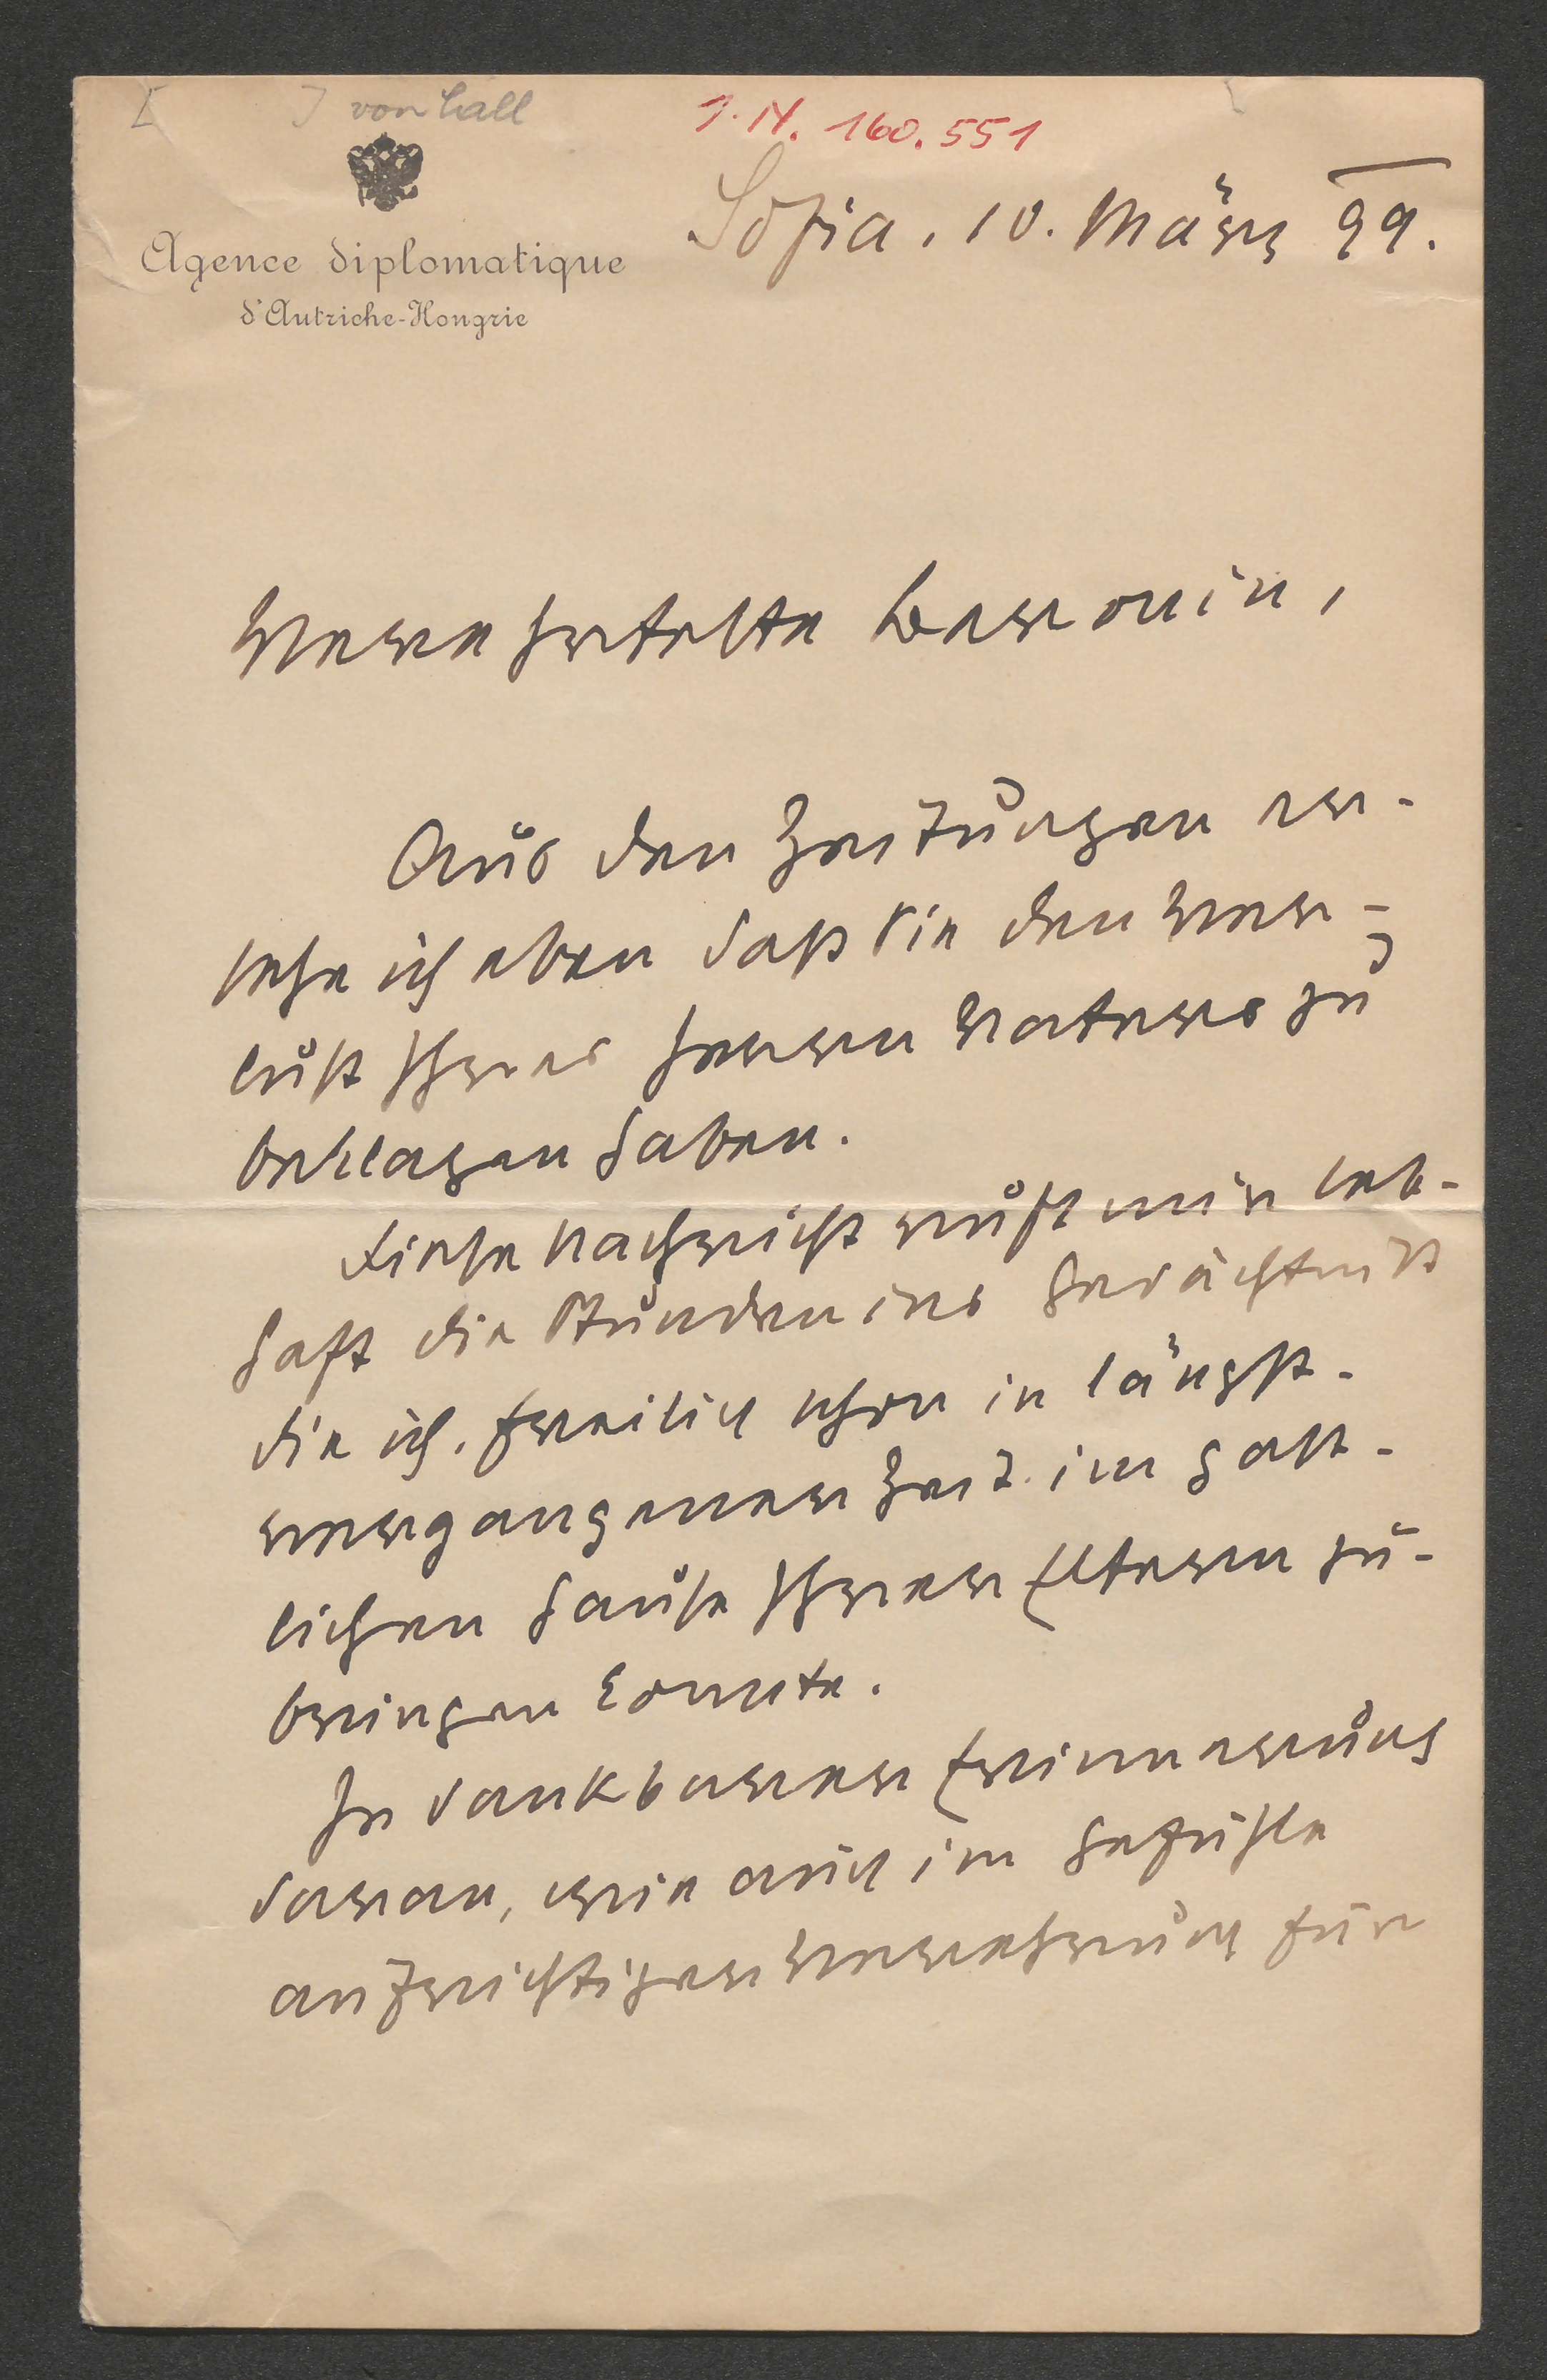 [ ] von Call
I.N. 160.551
Agence diplomatique
d'Autriche-Hongrie
Sofia, 10. März 99.
Verehrteste Baronin,
Aus den Zeitungen er-
sehe ich eben daß Sie den Ver-
lust Ihres Herrn Vaters zu
beklagen haben.
Diese Nachricht ruft mir leb-
haft die Stunden ins Gedächtniß
die ich, freilich schon in längst-
vergangener Zeit im gast-
lichen Hause Ihrer Eltern zu-
bringen konnte.
In dankbarer Erinnerung
daran, wie auch im Gefühle
aufrichtiger Verehrung für